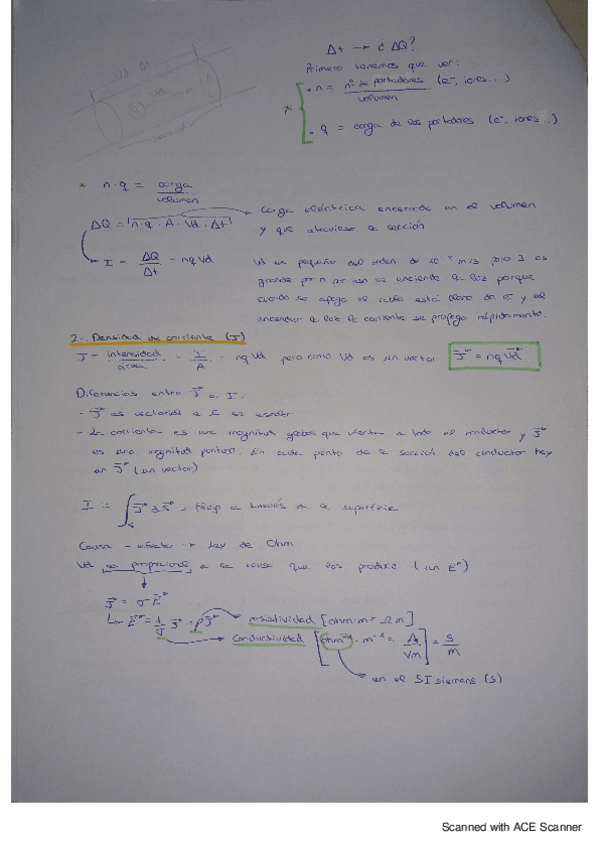 Vd Δt
Δt → ¿ ΔQ?
Primero tenemos que ver:
* • n = nº de portadores (e⁻, iones...) / volumen
• q = carga de los portadores (e⁻, iones...)
* n·q = carga / volumen
ΔQ = n·q·A·Vd·Δt → Carga eléctrica encerrada en el volumen
y que atraviesa la sección
I = ΔQ/Δt = nqVd
Vd es pequeño del orden de 10⁻⁴ m/s pero I es
grande por n por eso se enciende la luz porque
cuando se apaga el cable está lleno de e⁻ y al
encender la luz la corriente se propaga rápidamente.
2-. Densidad de corriente (J)
J = intensidad/área = I/A = nqVd pero como Vd es un vector J⃗ = nqV⃗d
Diferencias entre J⃗ e I:
- J⃗ es vectorial e I es escalar
- La corriente es una magnitud global que afecta a todo el conductor y J⃗
es una magnitud puntual. En cada punto de la sección del conductor hay
un J⃗ (un vector)
I = ∫ₛ J⃗ dS⃗ = flujo a través de la superficie
Causa - efecto → Ley de Ohm
Vd es proporcional a la causa que los produce (un E⃗)
J⃗ = σE⃗
E⃗ = 1/σ J⃗ = ρJ⃗ → resistividad [ohm·m = Ωm]
conductividad [ohm⁻¹·m⁻¹ = A/Vm] = S/m
en el SI siemens (S)
Scanned with ACE Scanner